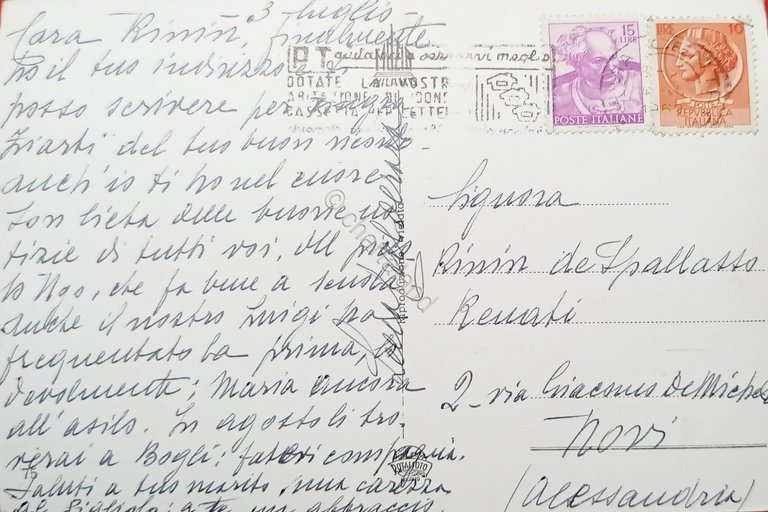 3 luglio
Cara Rinin, finalmente
ho il tuo indirizzo
posso scrivere per
ziarti del tuo buon ricordo
anch'io ti ho nel cuore
Son lieta delle buone no
tizie di tutti voi, del picco
lo Ugo, che fa bene a scuola
anche il nostro Luigi ha
frequentato la prima, lo
devolmente; Maria ancora
all'asilo. In agosto li tro
verai a Bogli: fatevi compagnia.
Saluti a tuo marito, una carezza
al figliolo a te un abbraccio
PT
MILANO
DOTATE LA VOSTR
ABITAZIONE
CASSETTA PER LETTERE
15
LIRE
POSTE ITALIANE
LIRE 10
REPVBBLICA
ITALIANA
Signora
Rinin de Spallasso
Renati
2 - via Giacomo De Michel
Novi
(Alessandria)
riproduzione vietata
TOTALFOTO
75